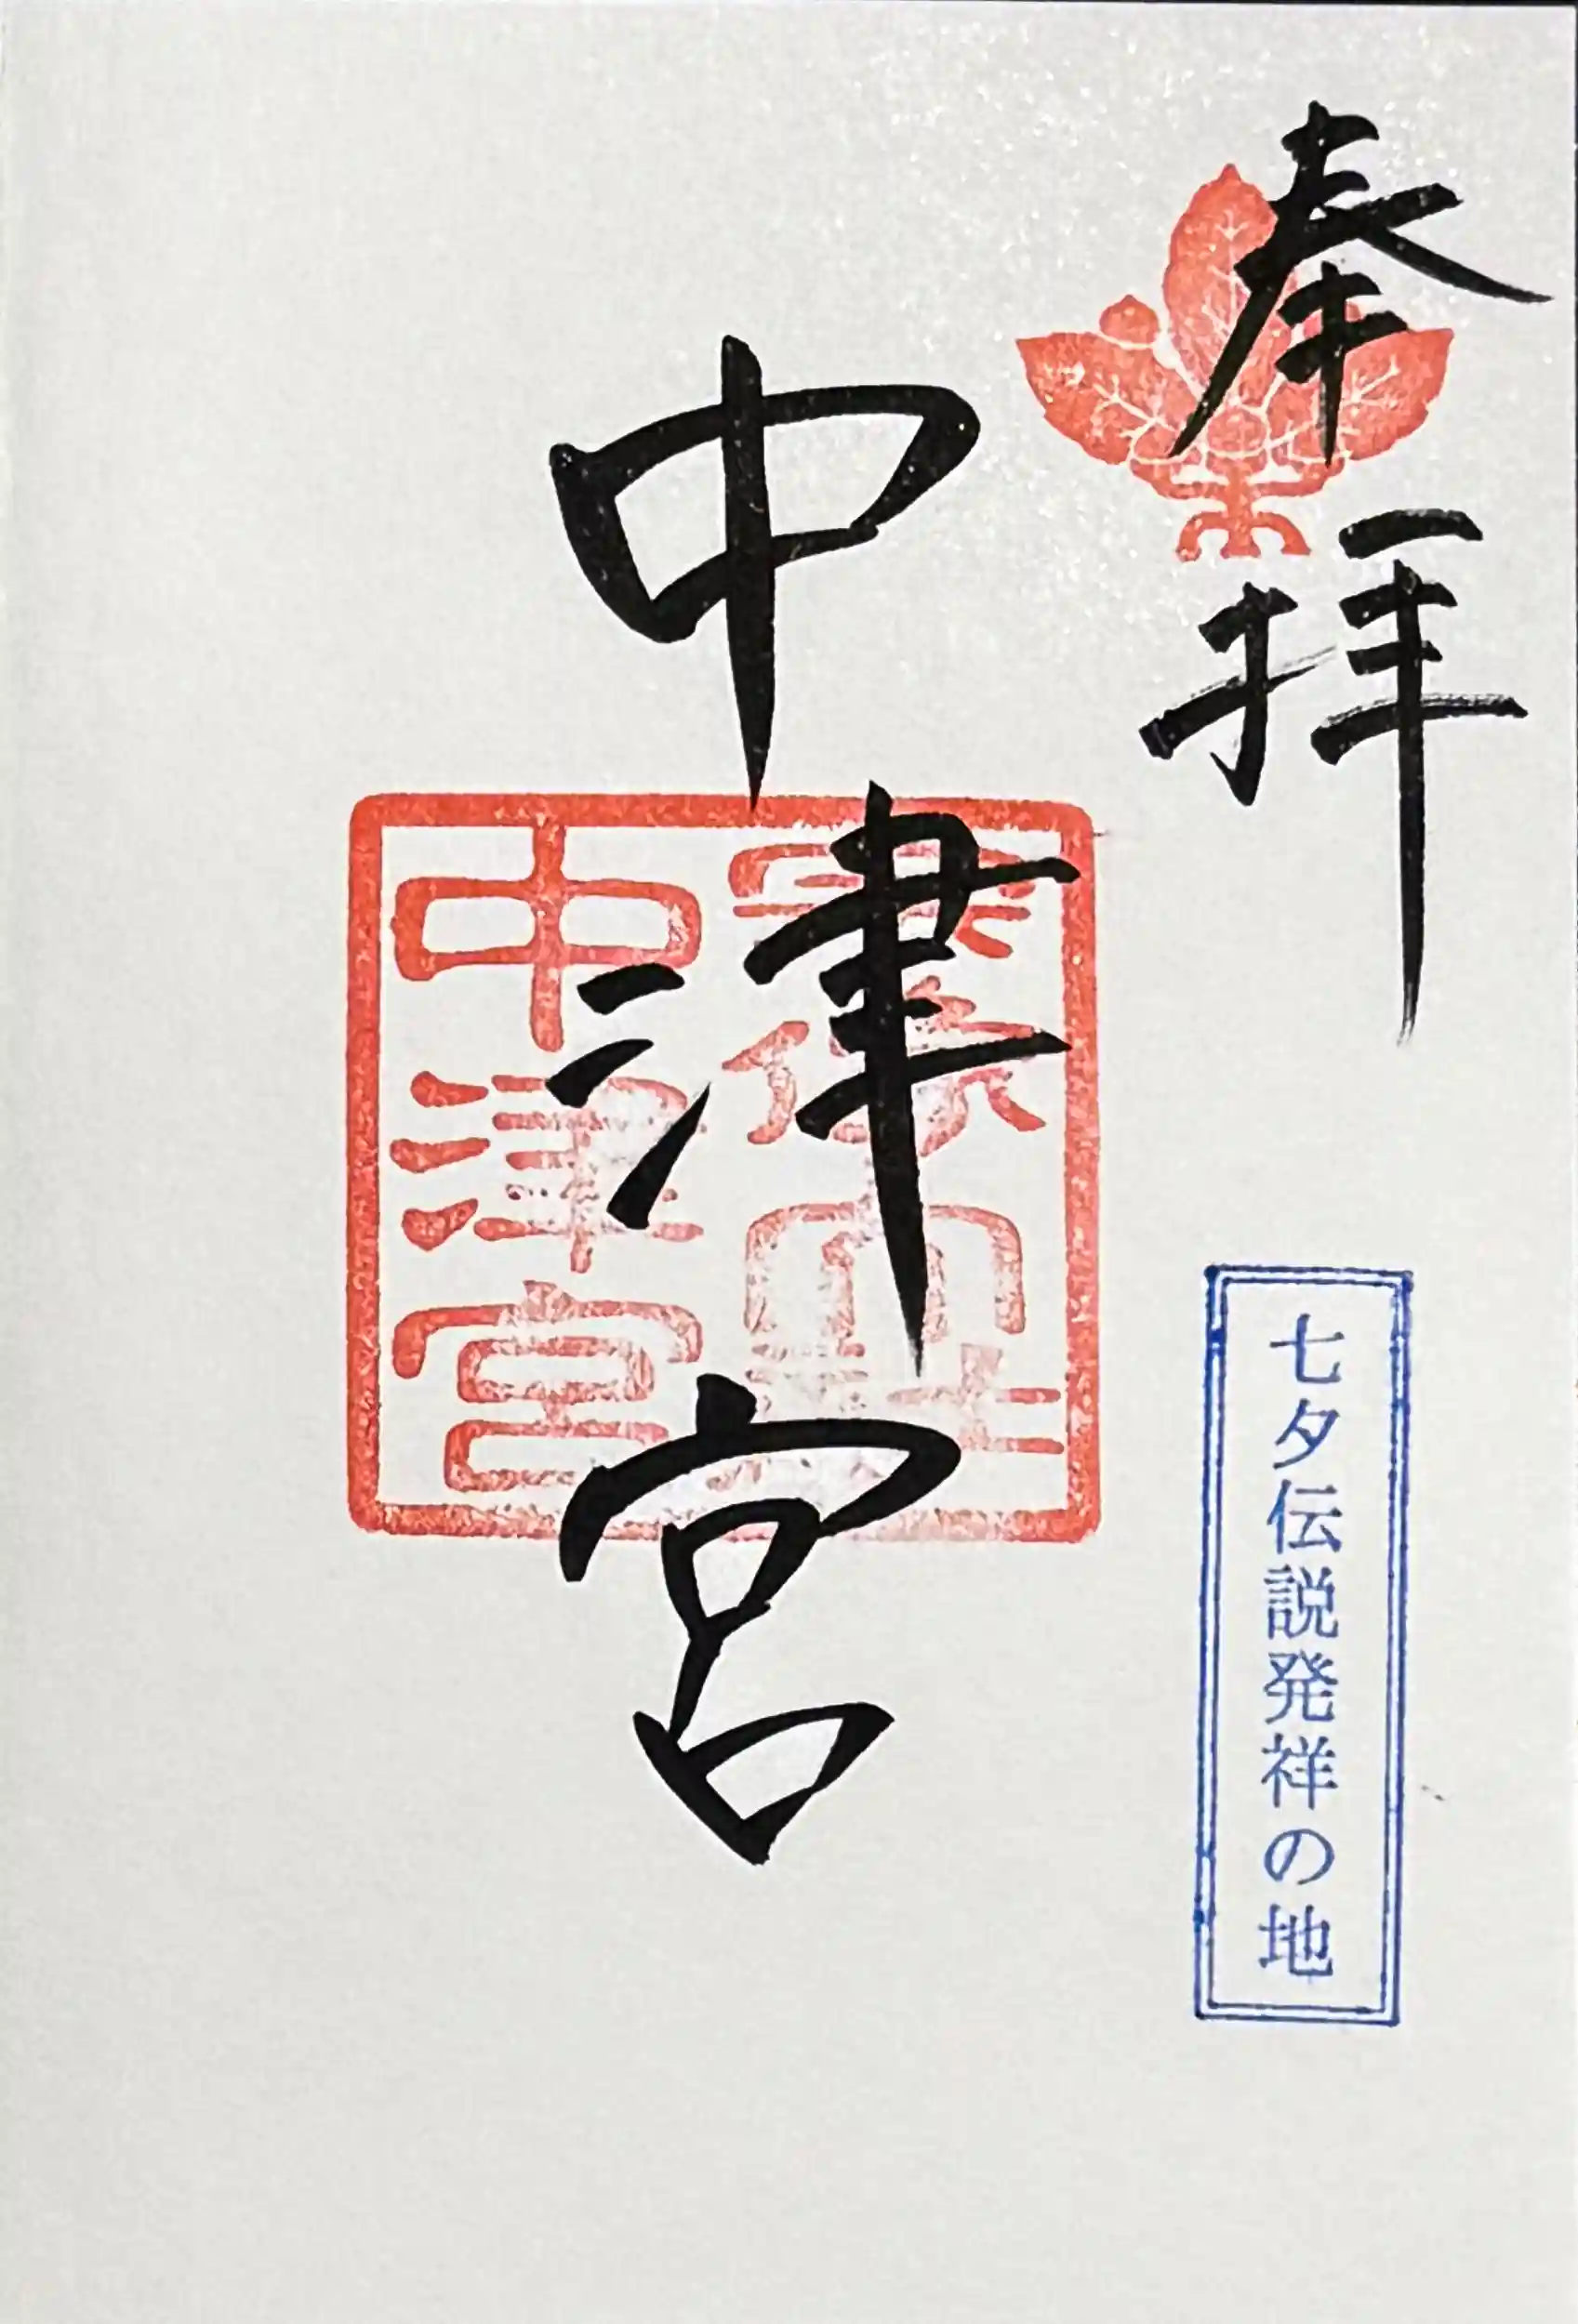 奉拝
七夕伝説発祥の地
中津宮
中津宮